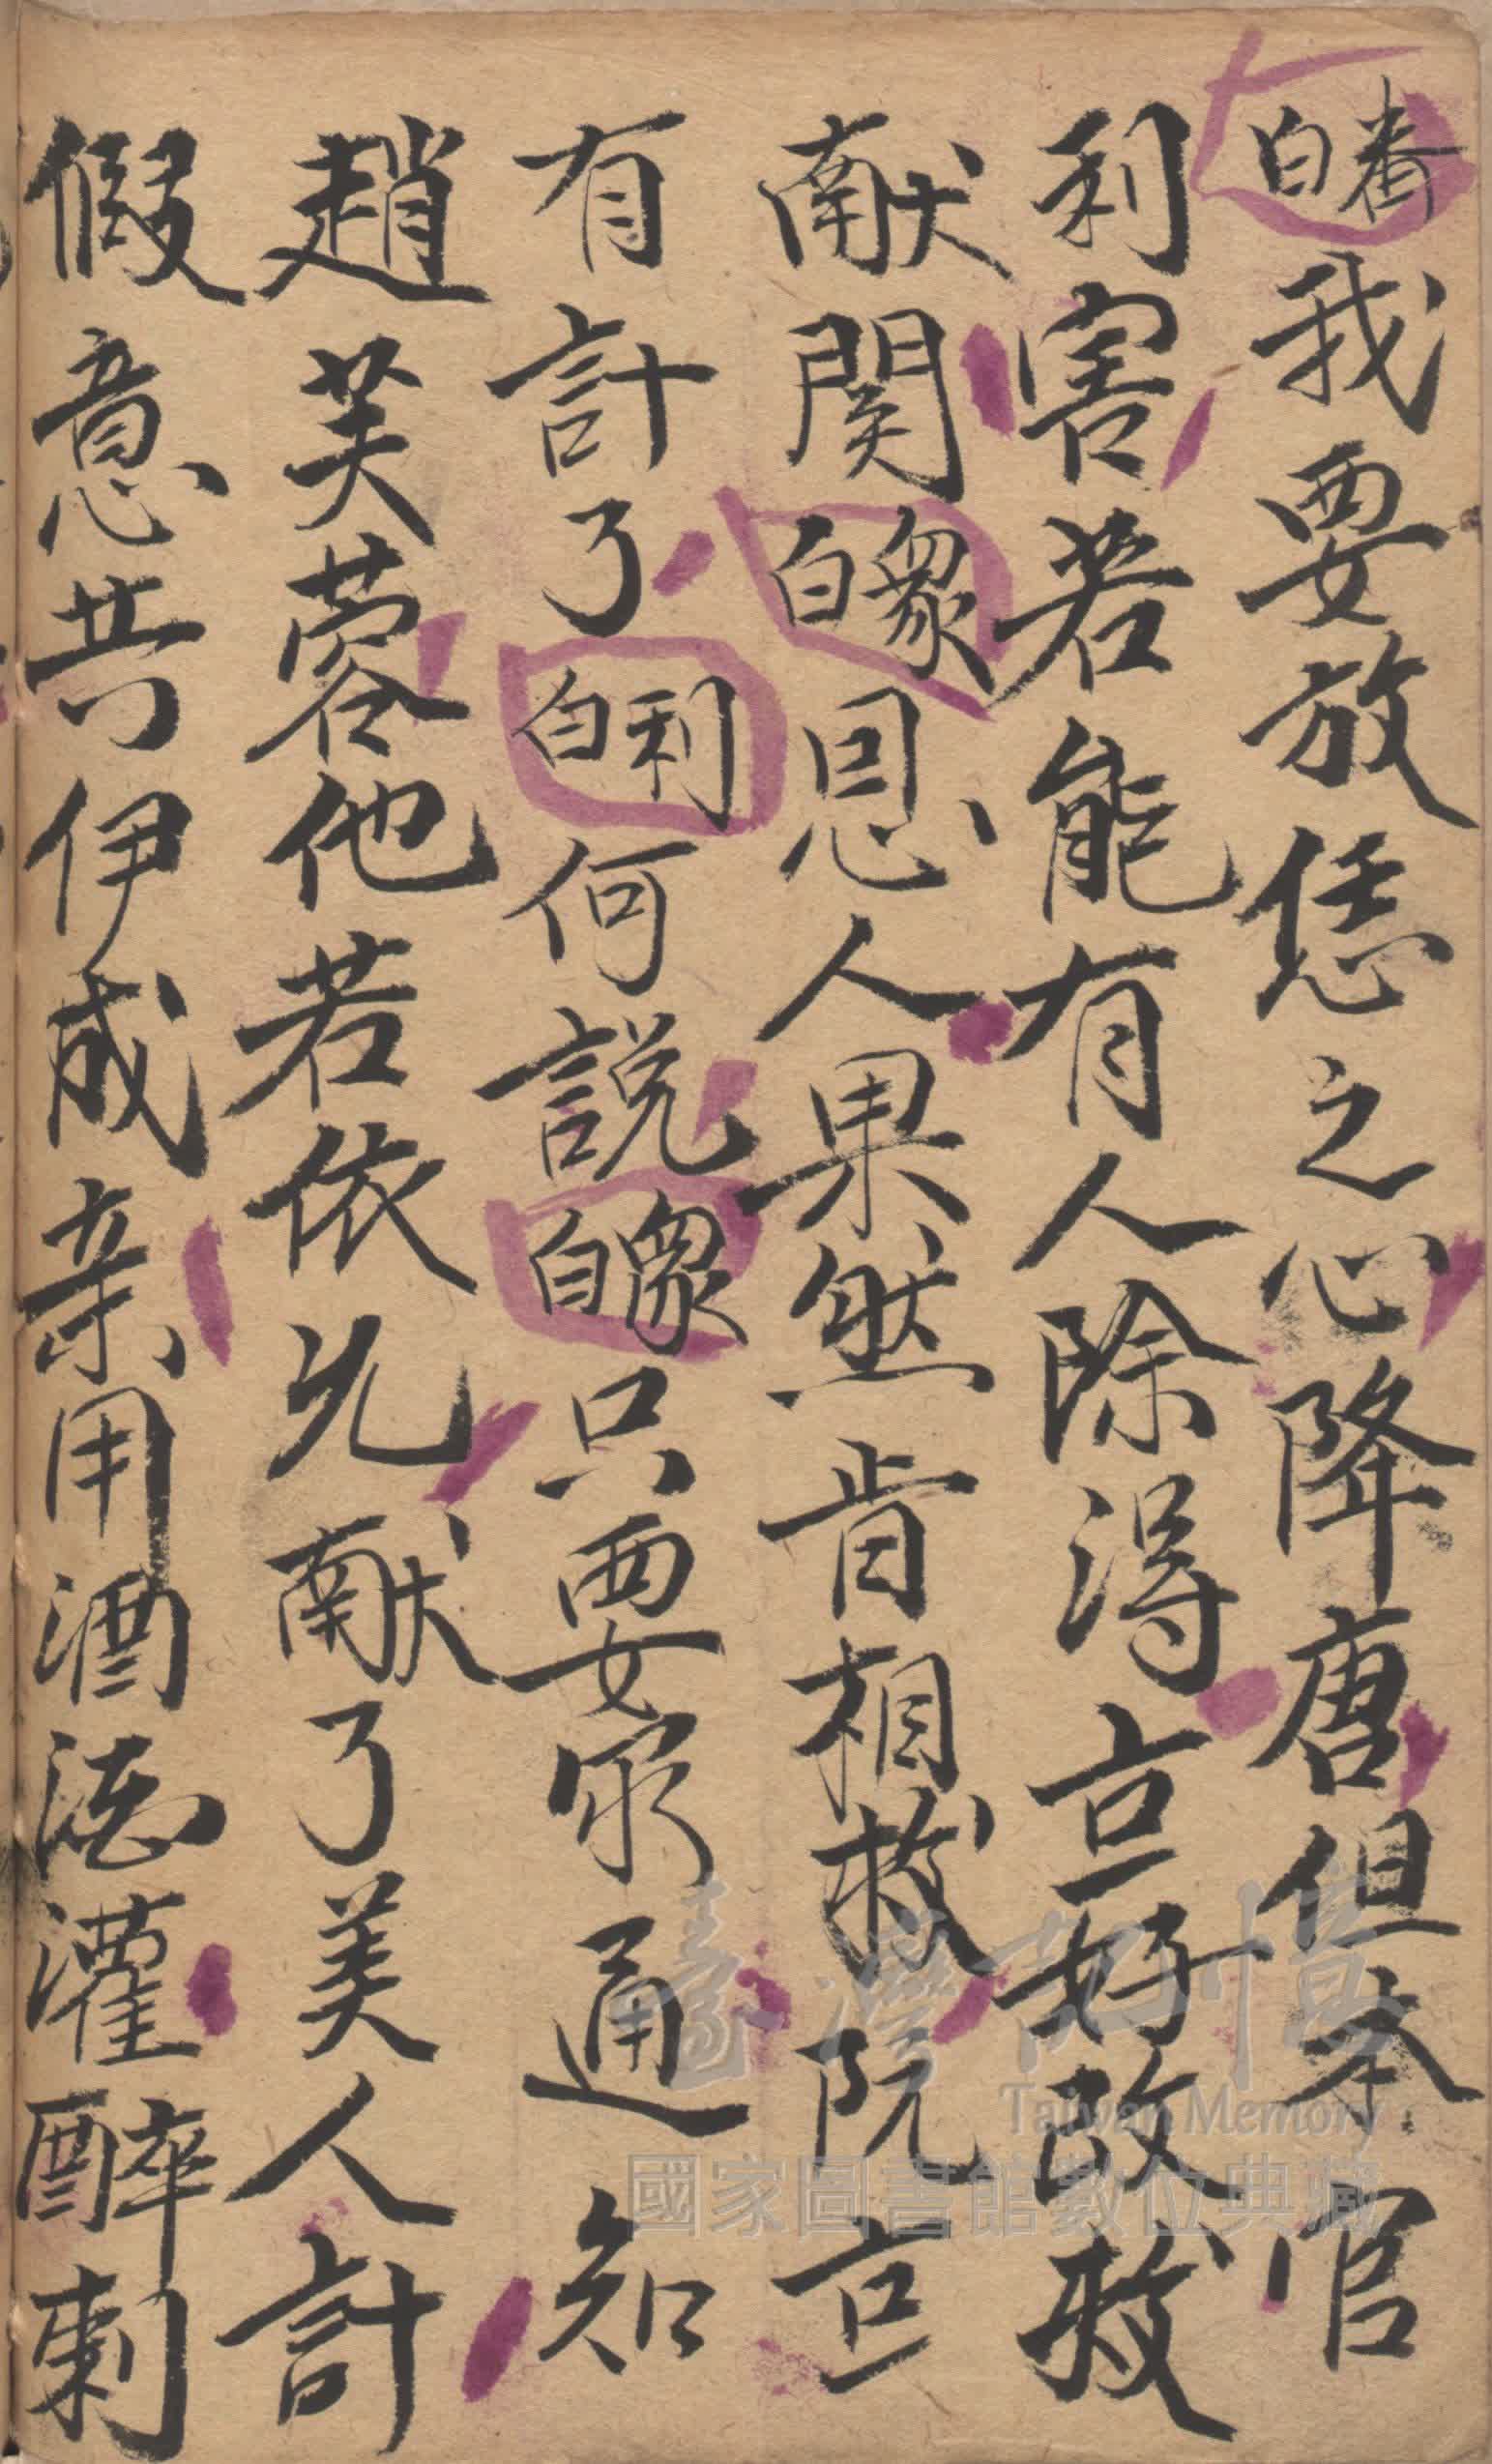 白番我要放恁之心降唐但本官
利害若能有人除得亘好改救
献関白眾恩人果然肯相救阮亘
有計了白利何說白眾只要家通知
趙芙蓉他若依允献了美人計
假意共伊成亲用酒淹灌醉刺
臺灣記憶
Taiwan Memory
國家圖書館數位典藏